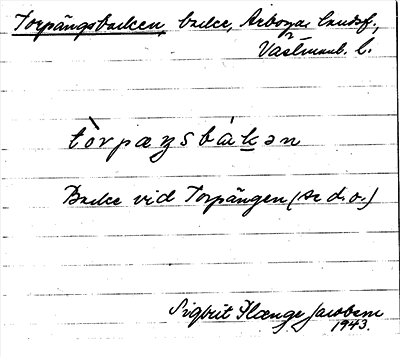 Torpängsbacken, backe, Arboga landsf.,
Västmanl. l.
tòrpæŋsbákən
Backe vid Torpängen (se d.o.)
Sigbrit Plænge Jacobson
1943.